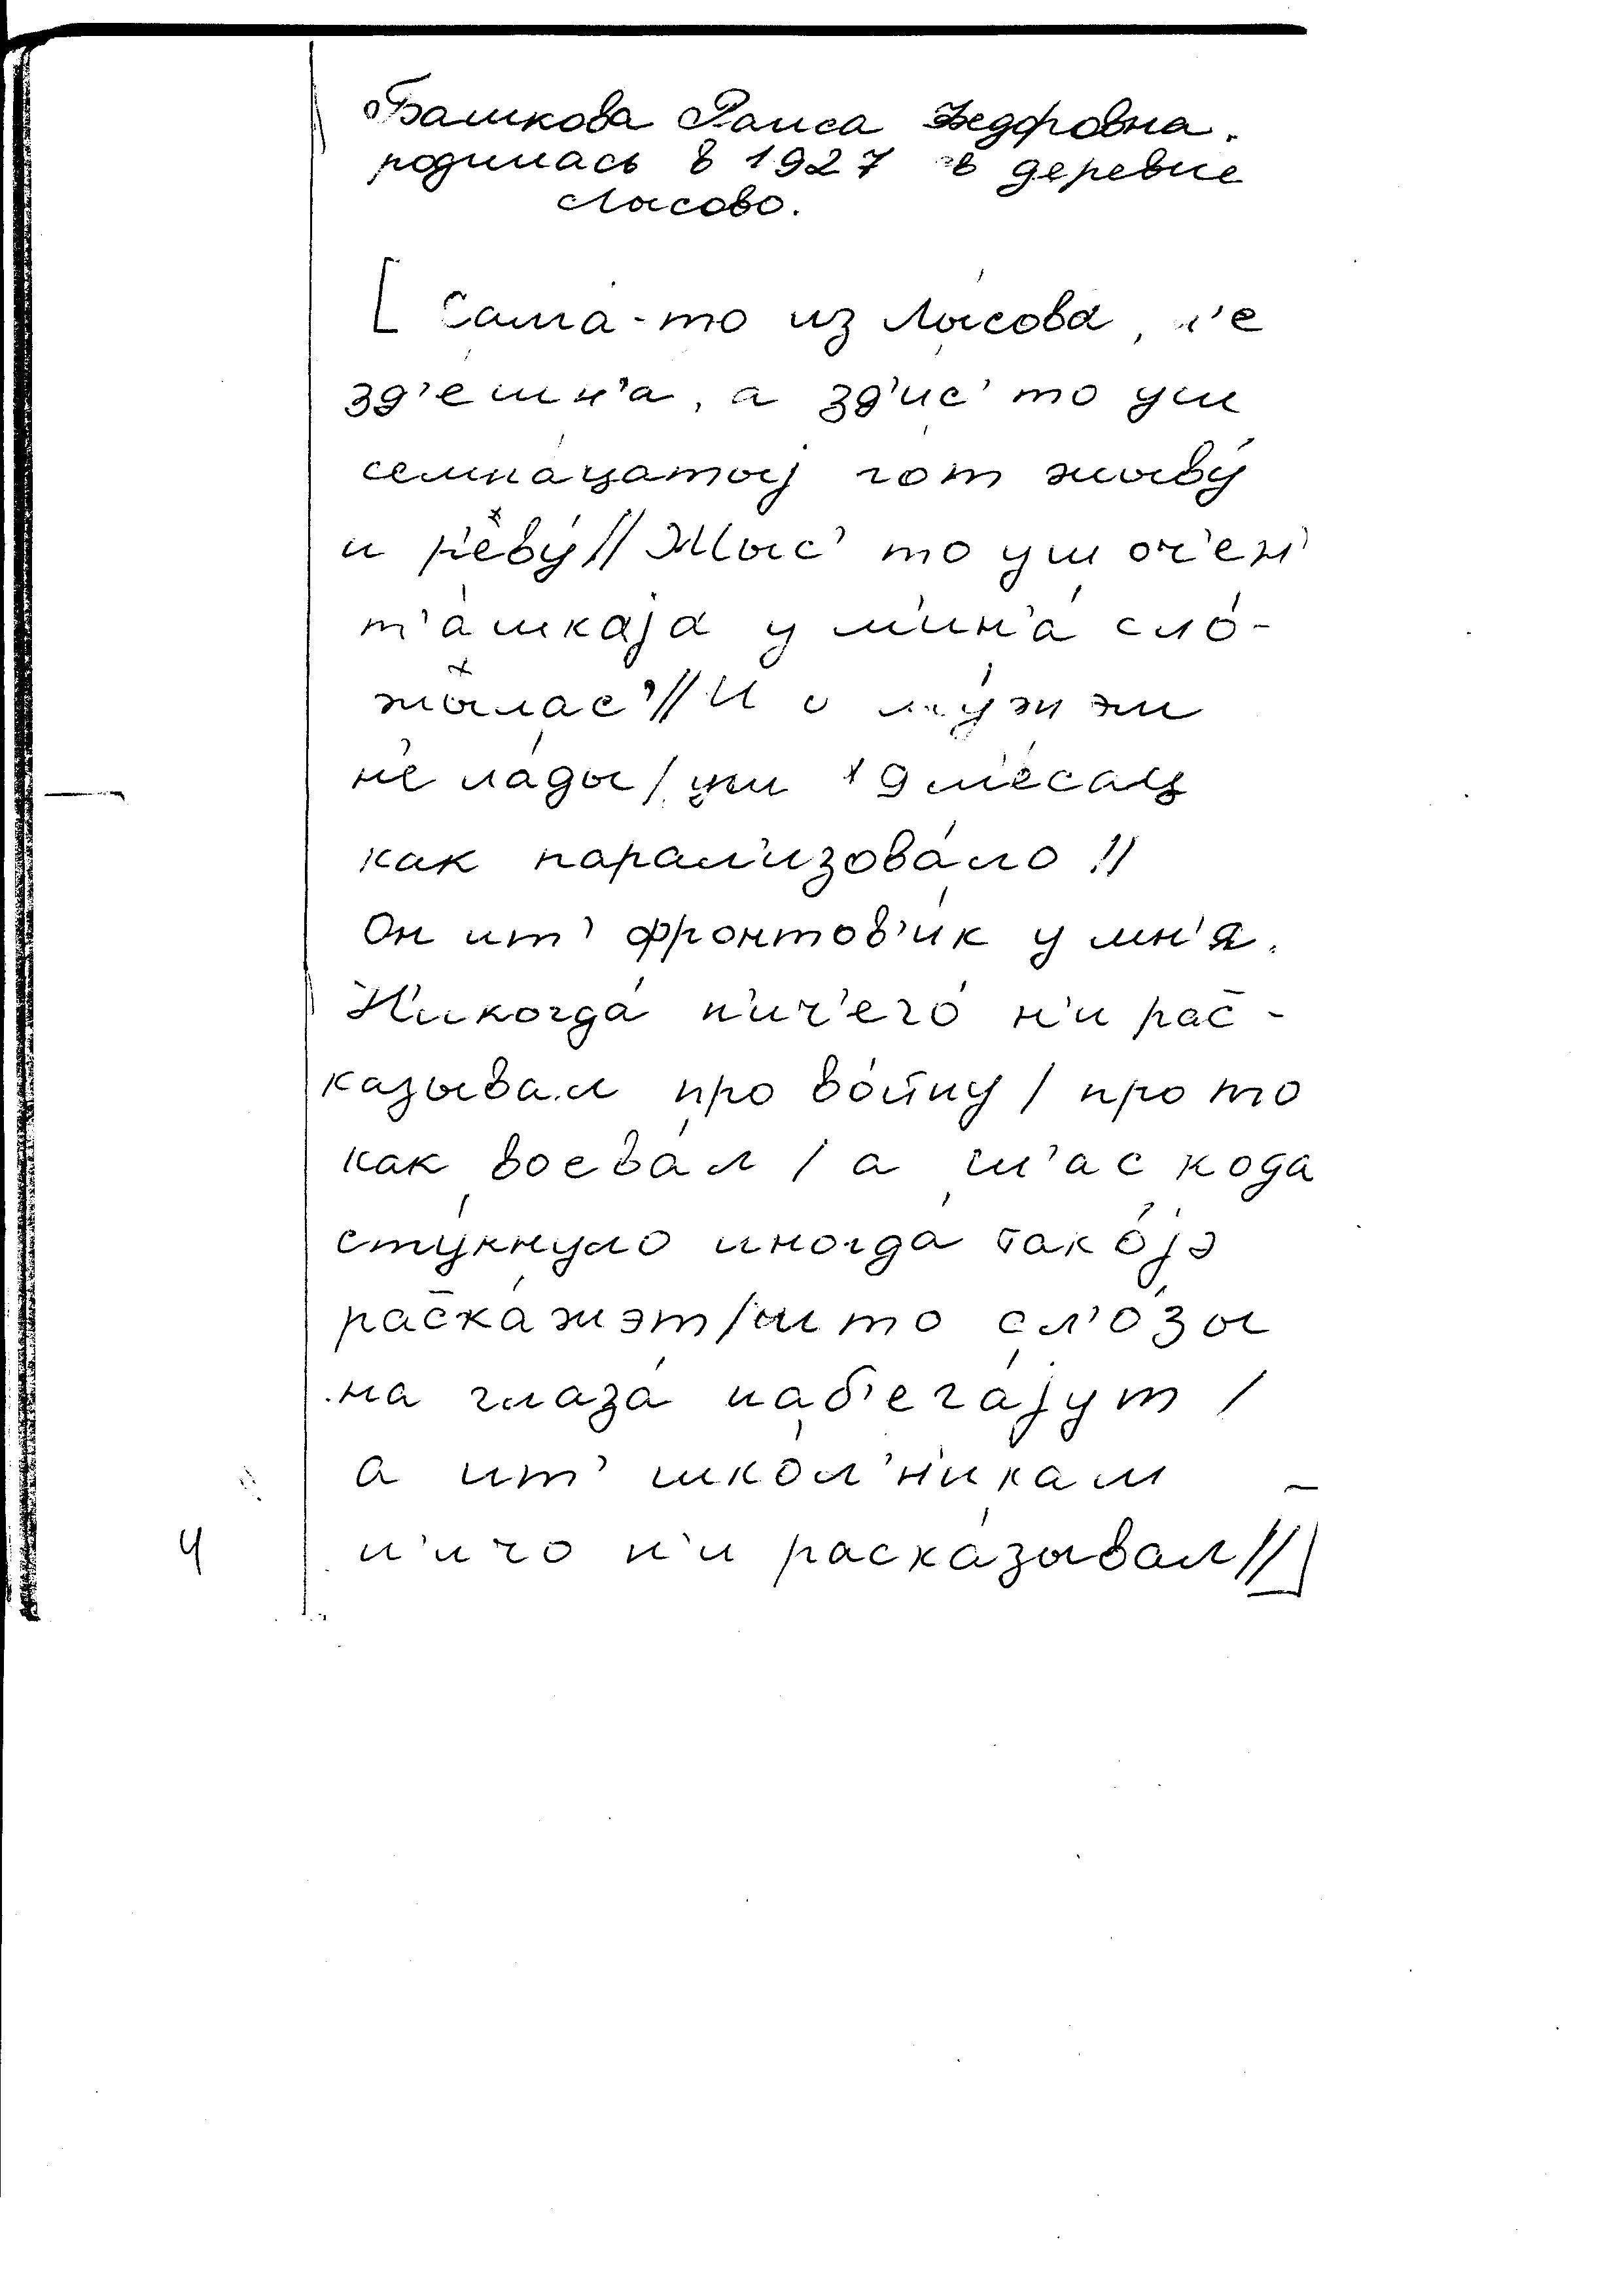 Башкова Раиса Федоровна.
родилась в 1927 в деревне
Лысово.
[ Сама́-то из Лы́сова, н'е
зд'е́шн'а, а зд'ис' то уш
семна́цатыj гот жыву́
и р'еву́ // Жыс' то уш оч'ен'
т'а́шкаjа у м'ин'а́ сло́-
жылас' // И с му́жжи
н'е ла́ды / уш 19 ме́сац
как парал'изова́ло //
Он ит' фронтов'и́к у мн'я.
Н'икогда́ н'ич'его́ н'и рас̄-
казывал про во́йну / про то
как воева́л / а ш'ас кода
сту́кнуло иногда́ тако́jэ
рас̄ка́жэт / што сл'о́зы
на глаза́ наб'ега́jут /
а ит' шко́л'н'икам
н'ичо н'и раска́зывал // ]
4